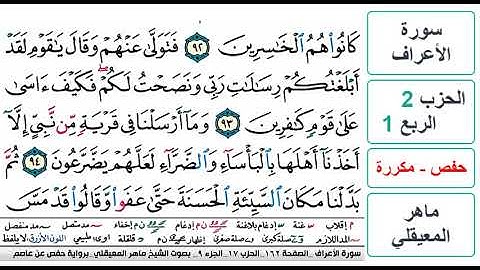 كَانُوا۟ هُمُ ٱلْخَـٰسِرِينَ ٩٢ فَتَوَلَّىٰ عَنْهُمْ وَقَالَ يَـٰقَوْمِ لَقَدْ
أَبْلَغْتُكُمْ رِسَـٰلَـٰتِ رَبِّى وَنَصَحْتُ لَكُمْ ۖ فَكَيْفَ ءَاسَىٰ
عَلَىٰ قَوْمٍ كَـٰفِرِينَ ٩٣ وَمَآ أَرْسَلْنَا فِى قَرْيَةٍ مِّن نَّبِىٍّ إِلَّآ
أَخَذْنَآ أَهْلَهَا بِٱلْبَأْسَآءِ وَٱلضَّرَّآءِ لَعَلَّهُمْ يَضَّرَّعُونَ ٩٤ ثُمَّ
بَدَّلْنَا مَكَانَ ٱلسَّيِّئَةِ ٱلْحَسَنَةَ حَتَّىٰ عَفَوا۟ وَّقَالُوا۟ قَدْ مَسَّ
سورة
الأعراف
الحزب 2
الربع 1
حفص - مكررة
ماهر
المعيقلي
سورة الأعراف - الصفحة ١٦٢ - الحزب ١٧ - الجزء ٩ - بصوت الشيخ ماهر المعيقلي - برواية حفص عن عاصم